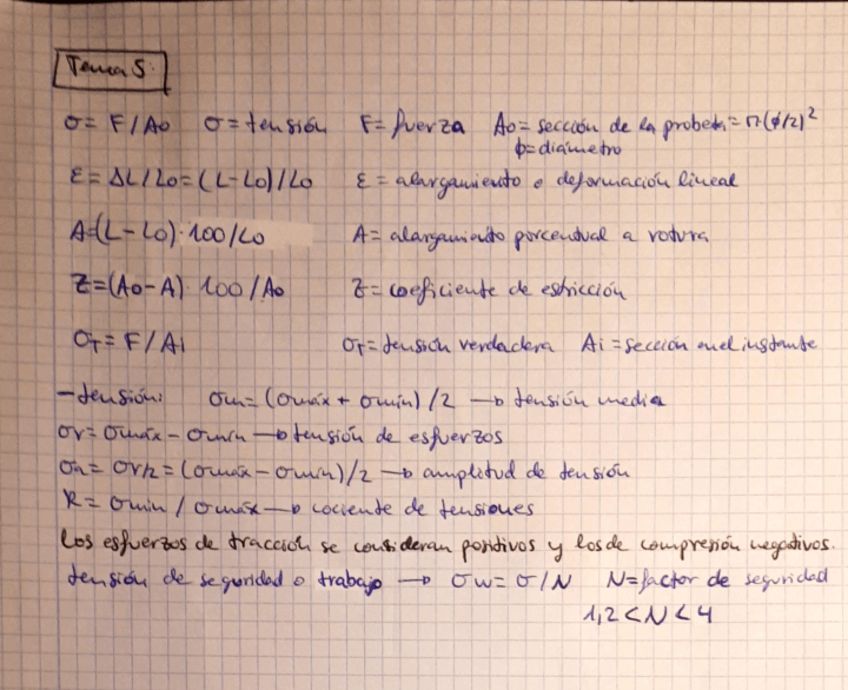 Tema 5:
σ = F/Ao   σ = tensión   F = fuerza   Ao = sección de la probeta = π·(ϕ/2)²
ϕ = diámetro
ε = ΔL/Lo = (L-Lo)/Lo   ε = alargamiento o deformación lineal
A=(L-Lo)·100/Lo   A = alargamiento porcentual a rotura
Z=(Ao-A)·100/Ao   Z = coeficiente de estricción
σT = F/Ai   σT = tensión verdadera   Ai = sección en el instante
-tensión:   σm = (σmáx + σmín)/2 → tensión media
σr = σmáx - σmín → tensión de esfuerzos
σa = σr/2 = (σmáx - σmín)/2 → amplitud de tensión
R = σmin / σmáx → cociente de tensiones
Los esfuerzos de tracción se consideran positivos y los de compresión negativos.
tensión de seguridad o trabajo → σw = σ/N   N = factor de seguridad
1,2 < N < 4